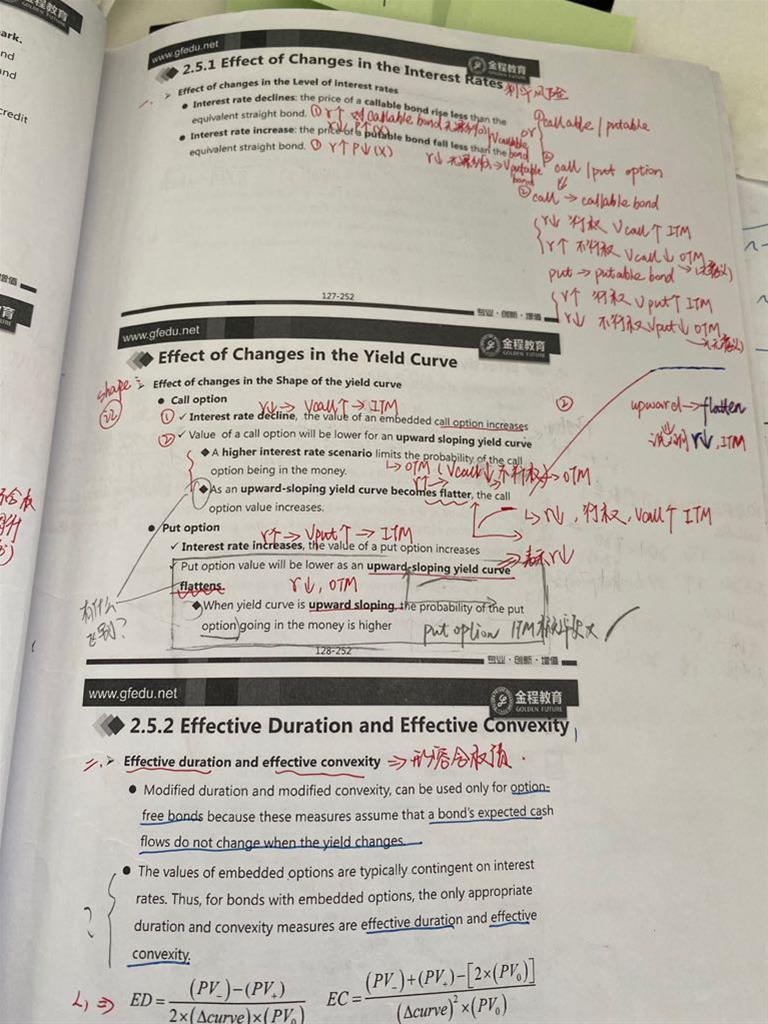 GOLDEN FUTURE
ark.
nd
and
credit
增值
www.gfedu.net
金程教育
2.5.1 Effect of Changes in the Interest Rates
利率风险
一、 Effect of changes in the Level of Interest rates
Interest rate declines: the price of a callable bond rise less than the
equivalent straight bond.
r↓ P↑(X)
Interest rate increase: the price of a putable bond fall less than the
equivalent straight bond. ① r↑ P↓(X)
① callable / putable
or
② call / put option
② call → callable bond
r↓ 行权 Vcall↑ ITM
r↑ 不行权 Vcall↓ OTM
put → putable bond
r↑ 行权 Vput↑ ITM
r↓ 不行权 Vput↓ OTM
127-252
专业·创新·增值
www.gfedu.net
金程教育
GOLDEN FUTURE
Effect of Changes in the Yield Curve
shape
Effect of changes in the Shape of the yield curve
Call option
r↓ → Vcall↑ → ITM
① Interest rate decline, the value of an embedded call option increases
② Value of a call option will be lower for an upward sloping yield curve
A higher interest rate scenario limits the probability of the call
option being in the money.
As an upward-sloping yield curve becomes flatter, the call
option value increases.
②
upward → flatten
r↓, ITM
r↓, 行权, Vcall↑ ITM
Put option
r↑ → Vput↑ → ITM
Interest rate increases, the value of a put option increases
Put option value will be lower as an upward-sloping yield curve
⇒ 表示 r↓
flattens.
r↓, OTM
When yield curve is upward sloping, the probability of the put
option going in the money is higher
put option ITM 概率更大
有什么
区别?
128-252
专业·创新·增值
www.gfedu.net
金程教育
GOLDEN FUTURE
2.5.2 Effective Duration and Effective Convexity
二、 Effective duration and effective convexity ⇒ 形容含权债.
Modified duration and modified convexity, can be used only for option-
free bonds because these measures assume that a bond's expected cash
flows do not change when the yield changes.
The values of embedded options are typically contingent on interest
rates. Thus, for bonds with embedded options, the only appropriate
duration and convexity measures are effective duration and effective
convexity.
?
ED = (PV₋)−(PV₊) / 2×(Δcurve)×(PV₀) EC = (PV₋)+(PV₊)−[2×(PV₀)] / (Δcurve)²×(PV₀)